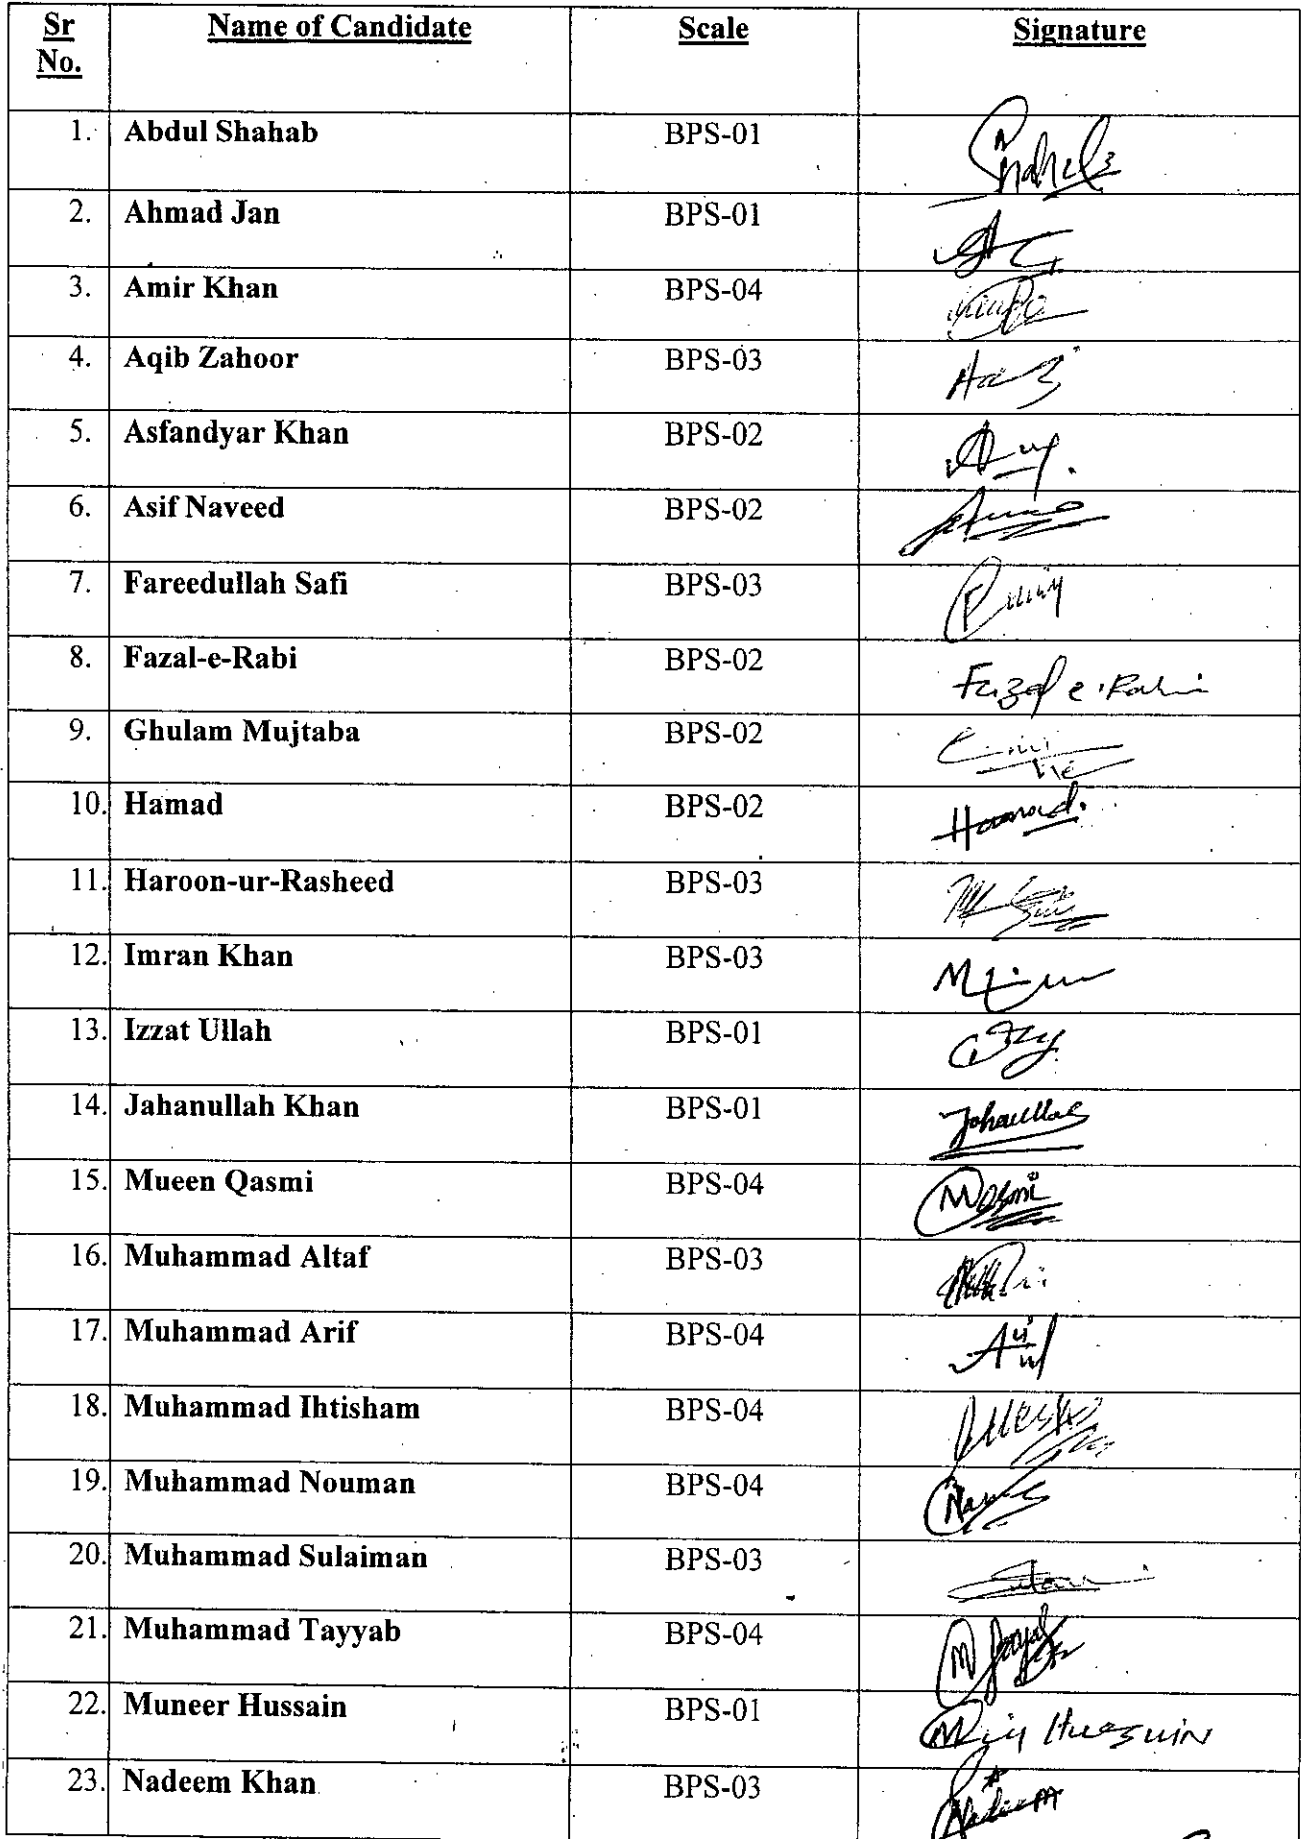 Sr No. Name of Candidate Scale Signature
1. Abdul Shahab BPS-01
2. Ahmad Jan BPS-01
3. Amir Khan BPS-04
4. Aqib Zahoor BPS-03
5. Asfandyar Khan BPS-02
6. Asif Naveed BPS-02
7. Fareedullah Safi BPS-03
8. Fazal-e-Rabi BPS-02 Fazal e Rabi
9. Ghulam Mujtaba BPS-02
10. Hamad BPS-02 Hamad.
11. Haroon-ur-Rasheed BPS-03
12. Imran Khan BPS-03
13. Izzat Ullah BPS-01
14. Jahanullah Khan BPS-01
15. Mueen Qasmi BPS-04
16. Muhammad Altaf BPS-03
17. Muhammad Arif BPS-04
18. Muhammad Ihtisham BPS-04
19. Muhammad Nouman BPS-04
20. Muhammad Sulaiman BPS-03
21. Muhammad Tayyab BPS-04
22. Muneer Hussain BPS-01
23. Nadeem Khan BPS-03